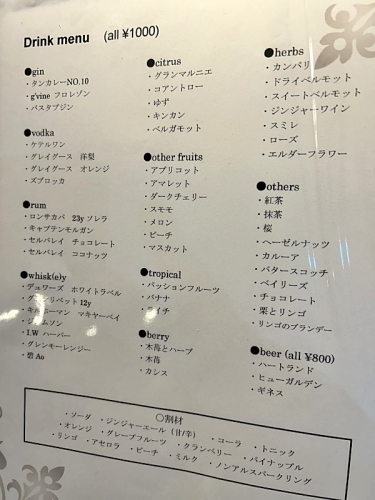 Drink menu (all ¥1000)
●gin
・タンカレーNO.10
・g'vine フロレゾン
・バスタブジン
●vodka
・ケテルワン
・グレイグース 洋梨
・グレイグース オレンジ
・ズブロッカ
●rum
・ロンサカパ 23y ソレラ
・キャプテンモルガン
・セルバレイ チョコレート
・セルバレイ ココナッツ
●whisk(e)y
・デュワーズ ホワイトラベル
・グレンリベット 12y
・キルホーマン マキヤーベイ
・ジェムソン
・I.W ハーパー
・グレンモーレンジー
・碧 Ao
●citrus
・グランマルニエ
・コアントロー
・ゆず
・キンカン
・ベルガモット
●other fruits
・アプリコット
・アマレット
・ダークチェリー
・スモモ
・メロン
・ピーチ
・マスカット
●tropical
・パッションフルーツ
・バナナ
・ライチ
●berry
・木苺とハーブ
・木苺
・カシス
●herbs
・カンパリ
・ドライベルモット
・スイートベルモット
・ジンジャーワイン
・スミレ
・ローズ
・エルダーフラワー
●others
・紅茶
・抹茶
・桜
・ヘーゼルナッツ
・カルーア
・バタースコッチ
・ベイリーズ
・チョコレート
・栗とリンゴ
・リンゴのブランデー
●beer (all ¥800)
・ハートランド
・ヒューガルデン
・ギネス
〇割材
・ソーダ ・ジンジャーエール (甘/辛) ・コーラ ・トニック
・オレンジ ・グレープフルーツ ・クランベリー ・パイナップル
・リンゴ ・アセロラ ・ピーチ ・ミルク ・ノンアルスパークリング